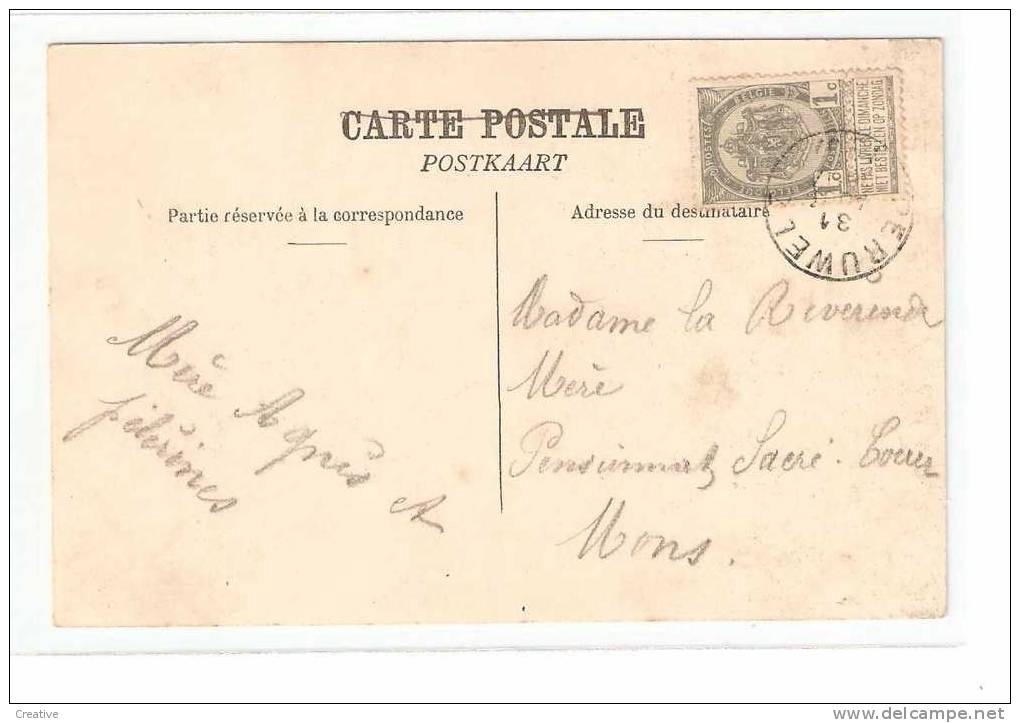 CARTE POSTALE
POSTKAART
Partie réservée à la correspondance
Adresse du destinataire
POSTES
BELGIE
BELGIQUE
1c
1c
NE PAS LIVRER LE DIMANCHE
NIET BESTELLEN OP ZONDAG
31
Madame la Reverende
Mère
Pensionnat Sacré-Coeur
Mons.
Mère Agnès et
pélérines
Creative
www.delcampe.net